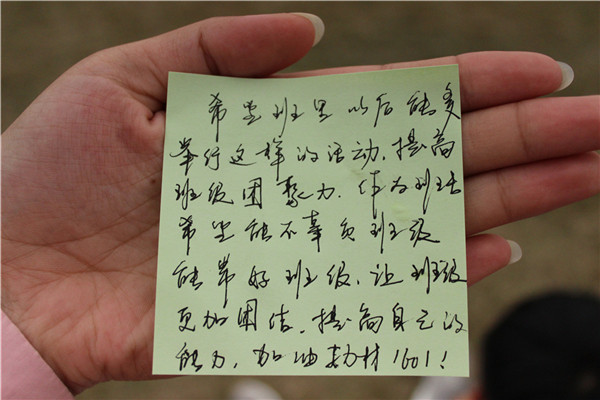 希望班里以后能多
举行这样的活动,提高
班级团聚力.作为班长
希望能不辜负班级
能带好班级,让班级
更加团结,提高自己的
能力,加油教材1601!